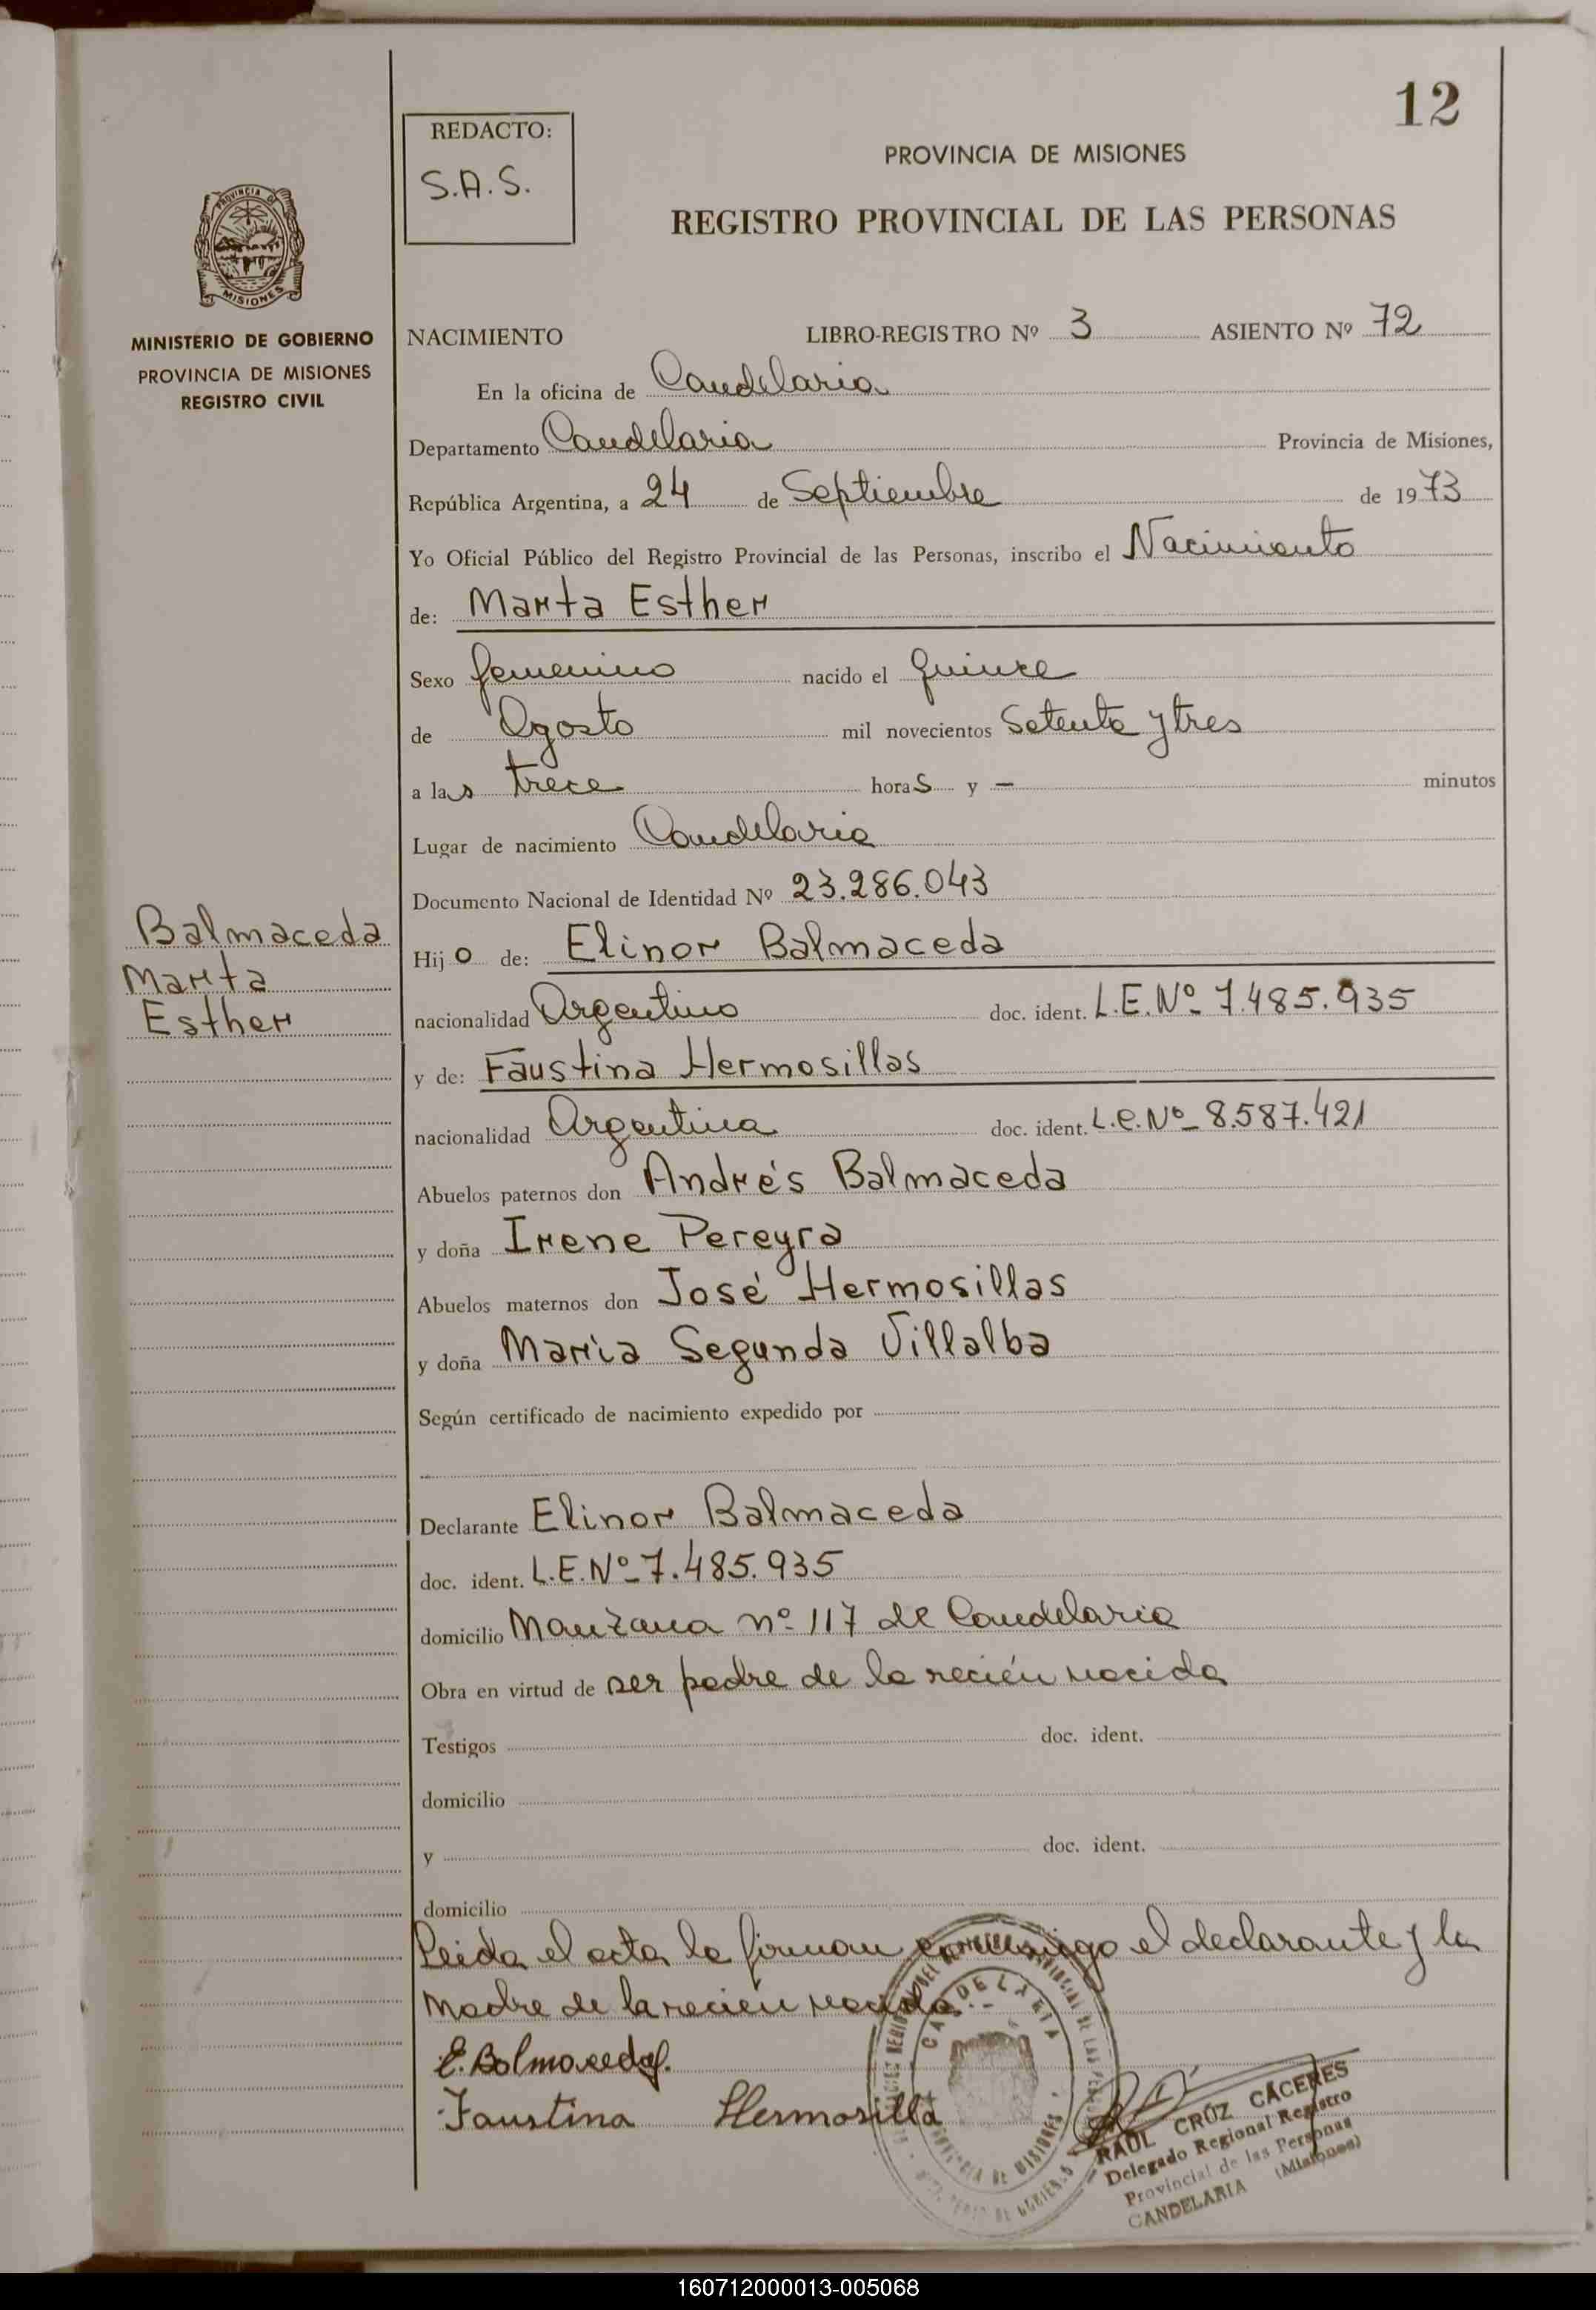 12
REDACTO:
S.A.S.
PROVINCIA DE MISIONES
REGISTRO PROVINCIAL DE LAS PERSONAS
PROVINCIA DE
MISIONES
MINISTERIO DE GOBIERNO
PROVINCIA DE MISIONES
REGISTRO CIVIL
NACIMIENTO LIBRO-REGISTRO Nº 3 ASIENTO Nº 72
En la oficina de Candelaria
Departamento Candelaria Provincia de Misiones,
República Argentina, a 24 de Septiembre de 1973
Yo Oficial Público del Registro Provincial de las Personas, inscribo el Nacimiento
de: Marta Esther
Sexo femenino nacido el quince
de Agosto mil novecientos Setenta y tres
a las trece horas y — minutos
Lugar de nacimiento Candelaria
Documento Nacional de Identidad Nº 23.286.043
Balmaceda
Marta
Esther
Hijo de: Elinor Balmaceda
nacionalidad Argentino doc. ident. L.E. Nº 7.485.935
y de: Faustina Hermosillas
nacionalidad Argentina doc. ident. L.C. Nº 8.587.421
Abuelos paternos don Andrés Balmaceda
y doña Irene Pereyra
Abuelos maternos don José Hermosillas
y doña María Segunda Villalba
Según certificado de nacimiento expedido por
Declarante Elinor Balmaceda
doc. ident. L.E. Nº 7.485.935
domicilio Manzana nº 117 de Candelaria
Obra en virtud de ser padre de la recién nacida
Testigos doc. ident.
domicilio
y doc. ident.
domicilio
Leida el acta la firman conmigo el declarante y la
Madre de la recién nacida.-
E. Balmaseda
Faustina Hermosilla
CANDELARIA
PROVINCIA DE MISIONES
RAUL CRUZ CACERES
Delegado Regional Registro
Provincial de las Personas
CANDELARIA (Misiones)
160712000013-005068